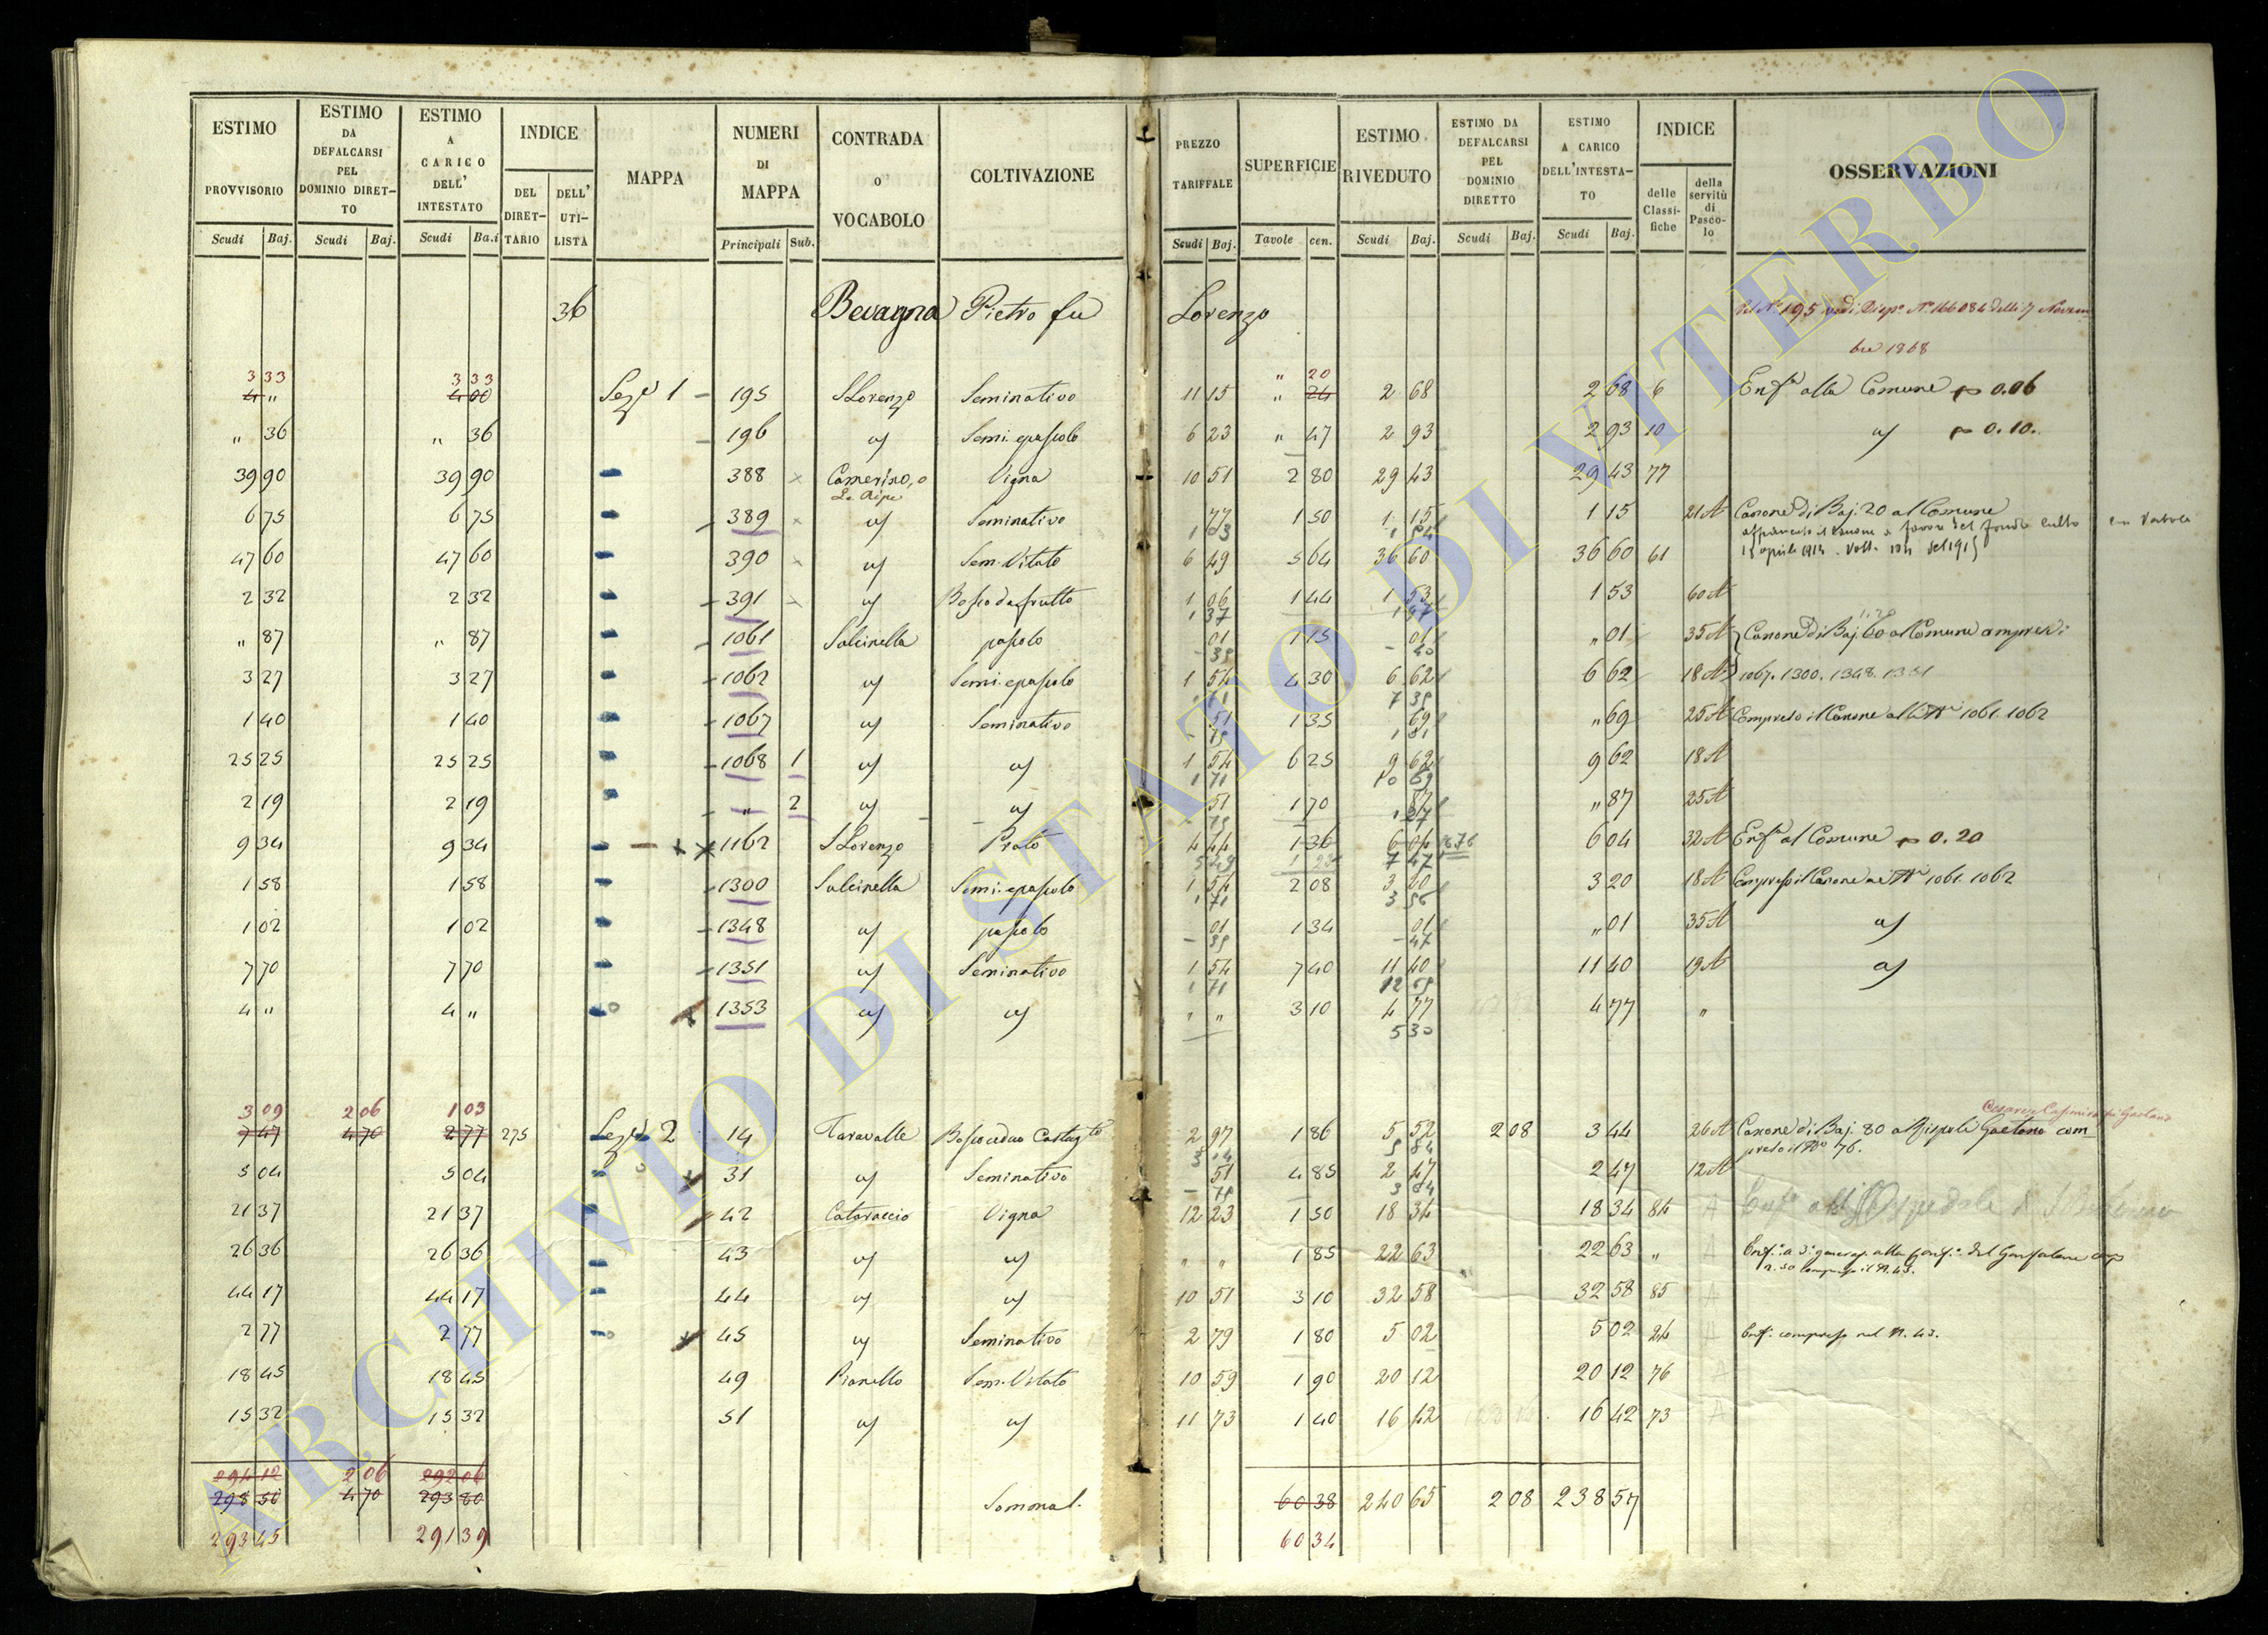 ESTIMO PROVVISORIO Scudi Baj. | ESTIMO DA DEFALCARSI PEL DOMINIO DIRET-TO Scudi Baj. | ESTIMO A CARICO DELL' INTESTATO Scudi Ba.i | INDICE DEL DIRET-TARIO | DELL' UTI-LISTA | MAPPA | NUMERI DI MAPPA Principali Sub. | CONTRADA O VOCABOLO | COLTIVAZIONE | PREZZO TARIFFALE Scudi Baj. | SUPERFICIE Tavole cen. | ESTIMO RIVEDUTO Scudi Baj. | ESTIMO DA DEFALCARSI PEL DOMINIO DIRETTO Scudi Baj. | ESTIMO A CARICO DELL'INTESTA-TO Scudi Baj. | INDICE delle Classi-fiche | della servitù di Pasco-lo | OSSERVAZIONI
36 Bevagna Pietro fu Lorenzo
Nov'em
bre 1868
3 33 3 33 " 20
4 " 4 00 Sez.e 1 195 S Lorenzo Seminativo 11 15 " 24 2 68 2 68 6 Enf.a alla Comune 0.06
" 36 " 36 196 Semi. e pascolo 6 23 " 47 2 93 2 93 10 0.10.
39 90 39 90 388 Camerino, o Le Ripe Vigna 10 51 2 80 29 43 29 43 77
6 75 6 75 389 Seminativo 77 1 50 1 15 1 15 21 A Canone di Baj 20 al Comune
1 03
47 60 47 60 390 Sem. Vitato 6 49 5 64 36 60 36 60 61
2 32 2 32 391 Bosco da frutto 1 06 1 44 1 53 1 53 60 A
1 37
" 87 " 87 1061 Salcinella pascolo 01 1 15 01 " 01 35 A Canone di Baj. 60 al Comune
3 27 3 27 1062 Semi. e pascolo 1 54 4 30 6 62 6 62 18 A 1067. 1300. 1348. 1351
7 39
1 40 1 40 1067 Seminativo 51 1 35 69 " 69 25 A Compreso il Canone alli N.i 1061. 1062
25 25 25 25 1068 1 1 54 6 25 9 62 9 62 18 A
1 71 10 69
2 19 2 19 " 2 51 1 70 87 " 87 25 A
9 34 9 34 1162 S Lorenzo Prato 4 44 1 36 6 04 6 04 32 A Enf.a al Comune 0.20
7 47
1 58 1 58 1300 Salcinella Semi. e pascolo 1 54 2 08 3 20 3 20 18 A Compreso il Canone ne N.i 1061. 1062
1 71 3 56
1 02 1 02 1348 pascolo 01 1 34 01 " 01 35 A
7 70 7 70 1351 Seminativo 1 54 7 40 11 40 11 40 19 A
1 71
4 " 4 " 1353 " " 3 10 4 77 4 77 "
5 30
3 09 2 06 1 03
7 47 4 70 2 77 275 Sez.e 2 14 Taravalle Bosco ceduo 2 97 1 86 5 52 2 08 3 44 26 A Canone di Baj. 80 a Rispoli Gaetano com
preso il N.o 76.
5 04 5 04 31 Seminativo 51 4 85 2 47 2 47 12 A
21 37 21 37 42 Vigna 12 23 1 50 18 34 18 34 84
26 36 26 36 43 " " 1 85 22 63 22 63 "
44 17 44 17 44 10 51 3 10 32 58 32 58 85
2 77 2 77 45 Seminativo 2 79 1 80 5 02 5 02 24 Enf. compreso nel N. 43.
18 45 18 45 49 Pianello Sem. Vitato 10 59 1 90 20 12 20 12 76
15 32 15 32 51 11 73 1 40 16 42 16 42 73
294 12 2 06 292 06
298 50 4 70 293 80 Somma 60 38 240 65 2 08 238 57
293 45 291 39 60 34
ARCHIVIO DI STATO DI VITERBO